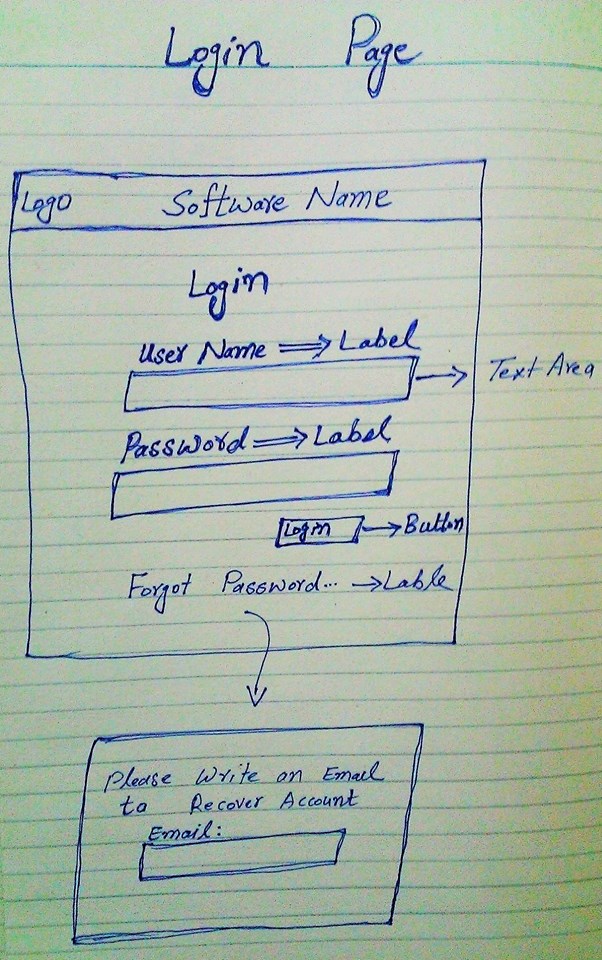 Login Page
Logo Software Name
Login
User Name ⟹ Label
→ Text Area
Password ⟹ Label
Login → Button
Forgot Password... → Lable
Please Write an Email
to Recover Account
Email: